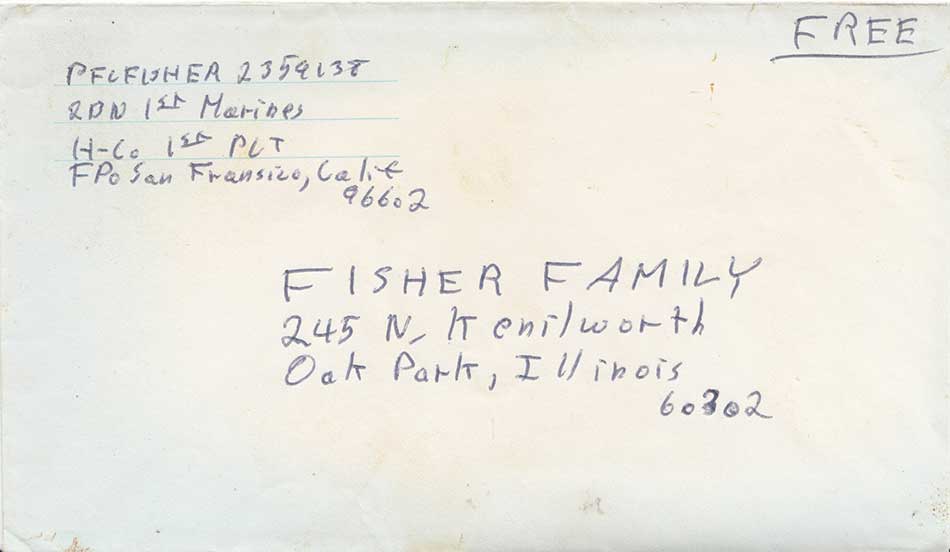 FREE
PFC FISHER 2359138
2BN 1ST Marines
H-Co 1ST PLT
FPO San Fransico, Calif
96602
FISHER FAMILY
245 N. Kenilworth
Oak Park, Illinois
60302